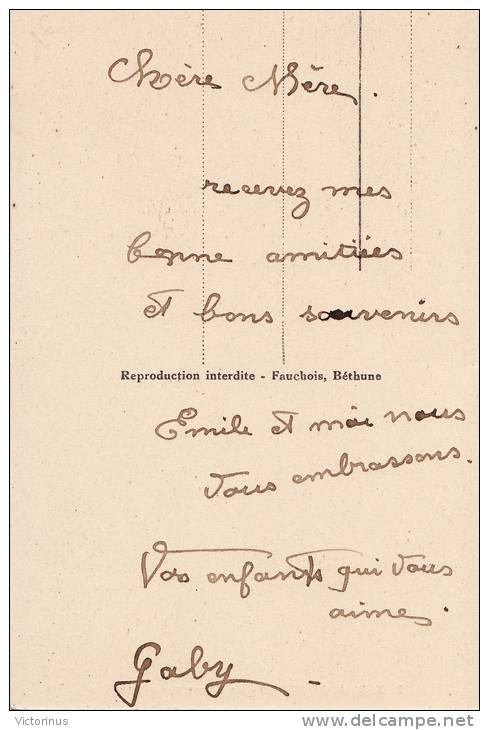 Chère Mère.
recevez mes
bonne amitiées
et bons souvenirs
Reproduction interdite - Fauchois, Béthune
Emile et moi nous
vous embrassons.
Vos enfants qui vous
aimes.
Gaby -
Victorinus
http://www.delcampe.net